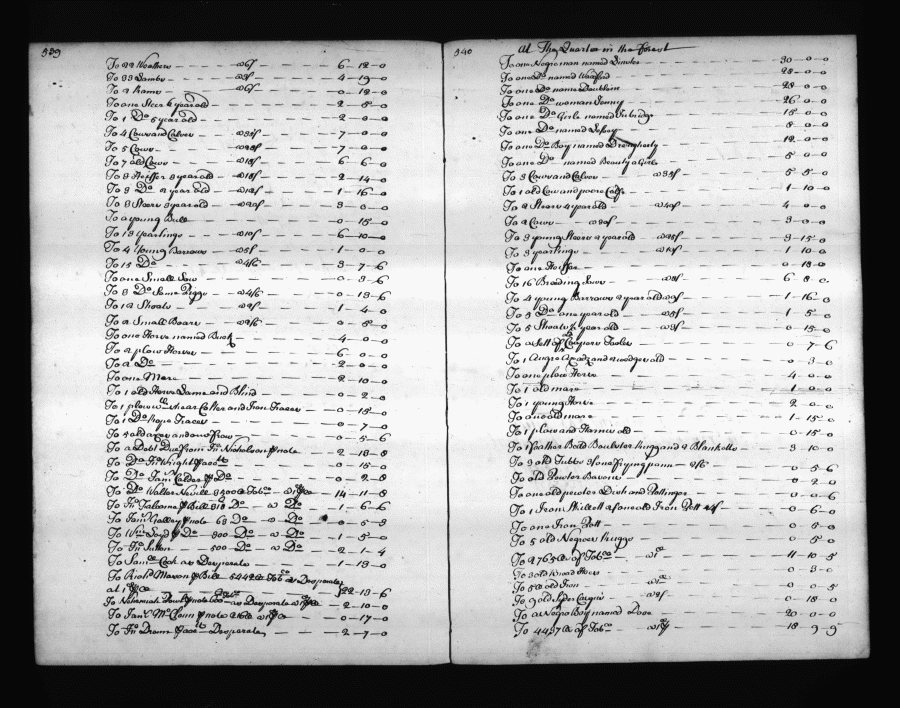 539
To 22 Weathers — @ 6/ — 6 - 12 - 0
To 33 Lambs — @ 3/ — 4 - 19 - 0
To 2 Rams — @ 6/ — 0 - 12 - 0
To one Steer 6 year old — 2 - 5 - 0
To 1 Do 5 year old — 2 - 0 - 0
To 4 Cows and Calves — @ 35/ — 7 - 0 - 0
To 5 Cows — @ 28/ — 7 - 0 - 0
To 7 old Cows — @ 18/ — 6 - 6 - 0
To 3 Heiffers 3 year old — @ 18/ — 2 - 14 - 0
To 3 Do 2 year old — @ 12/ — 1 - 16 - 0
To 3 Steers 3 year old — @ 20/ — 3 - 0 - 0
To a young Bull — 0 - 15 - 0
To 13 Yearlings — @ 10/ — 6 - 10 - 0
To 4 Young Barrows — @ 5/ — 1 - 0 - 0
To 15 Do — @ 4/6 — 3 - 7 - 6
To one Small Sow — 0 - 3 - 6
To 3 Do Some Piggs — @ 4/6 — 0 - 13 - 6
To 12 Shoats — @ 2/ — 1 - 4 - 0
To 2 Small Boars — @ 2/6 — 0 - 5 - 0
To one Horse named Buck — 4 - 0 - 0
To a plow Horse — 6 - 0 - 0
To a Do — 2 - 0 - 0
To one Mare — 2 - 10 - 0
To 1 old Horse Lame and Blind — 0 - 2 - 0
To 1 plow Shear Colter and Iron Traces — 0 - 15 - 0
To 1 Do Rope Traces — 0 - 7 - 0
To 4 old axes and — 0 - 5 - 6
To a Debt Due from Jno Nicholson p note — 2 - 18 - 8
To Do Jno Wright p acco — 0 - 15 - 0
To Do Jams Calder p Do — 0 - 2 - 8
To Do Walter Nevill 3500 Tobco — 14 - 11 - 8
To Jno Talcome p Bill 318 Do — @ Do — 1 - 6 - 6
To Jams Galley p note 68 Do — @ Do — 0 - 5 - 8
To Wm Loyd p Do — 300 Do — @ Do — 1 - 5 - 0
To Jno Sutton — 500 Do — @ Do — 2 - 1 - 4
To Saml Cook as Desperate — 1 - 13 - 0
To Richd Mason p Bill 5442 Tobco as Desperate
at 1 — 22 - 13 - 6
To Nehemiah p note 600 as Desperate — 2 - 10 - 0
To Jams McClenn p note — 0 - 17 - 0
To Jno Drum p acco Desperate — 2 - 7 - 0
540
At The Quarter in the Forest
To one Negro man named — 30 - 0 - 0
To one Do named — 28 - 0 - 0
To one Do name — 28 - 0 - 0
To one Do woman Jenny — 26 - 0 - 0
To one Do Girle named — 15 - 0 - 0
To one Do named — 8 - 0 - 0
To one Do Boy named — 12 - 0 - 0
To one Do named Beauty a Girle — 5 - 0 - 0
To 3 Cows and Calves — @ 35/ — 5 - 5 - 0
To 1 old Cow and poore Calfe — 1 - 10 - 0
To 2 Steers 4 year old — @ 40/ — 4 - 0 - 0
To 2 Cows — @ 30/ — 3 - 0 - 0
To 3 young Steers 2 year old — @ 25/ — 3 - 15 - 0
To 3 yearlings — @ 10/ — 1 - 10 - 0
To one Heiffer — 0 - 18 - 0
To 16 Breeding Sows — @ 8/ — 6 - 8 - 0
To 4 young Barrows 2 year old @ 9/ — 1 - 16 - 0
To 5 Do one year old — @ 5/ — 1 - 5 - 0
To 5 Shoats ½ year old — @ 3/ — 0 - 15 - 0
To a Sett of Coopers Tooles — 0 - 7 - 6
To 1 Augre and a wedge old — 0 - 3 - 0
To one plow Horse — 4 - 0 - 0
To 1 old mare — 1 - 0 - 0
To 1 young Horse — 2 - 0 - 0
To an old mare — 1 - 15 - 0
To 1 plow and Harness old — 0 - 15 - 0
To 1 Feather Bed Boulster Rugg and 2 Blanketts — 3 - 10 - 0
To 3 old Tubbs & one Frying pann — 0 - 5 - 6
To old Pewter Basons — 0 - 2 - 0
To one old pewter Dish and Pottinger — 0 - 0 - 6
To 1 Iron Skillett & some old Iron Pott — 0 - 6 - 0
To one Iron Pott — 0 - 5 - 0
To 5 old Negroes Ruggs — 0 - 5 - 0
To 2765 of Tobco — 11 - 10 - 5
To 3 old Broad Hoes — 0 - 3 - 0
To 5 old Iron — 0 - 0 - 5
To 9 old Sider Casques — @ 2/ — 0 - 18 - 0
To a Negro Boy named — 20 - 0 - 0
To 4437 of Tobco — 18 - 9 - 9